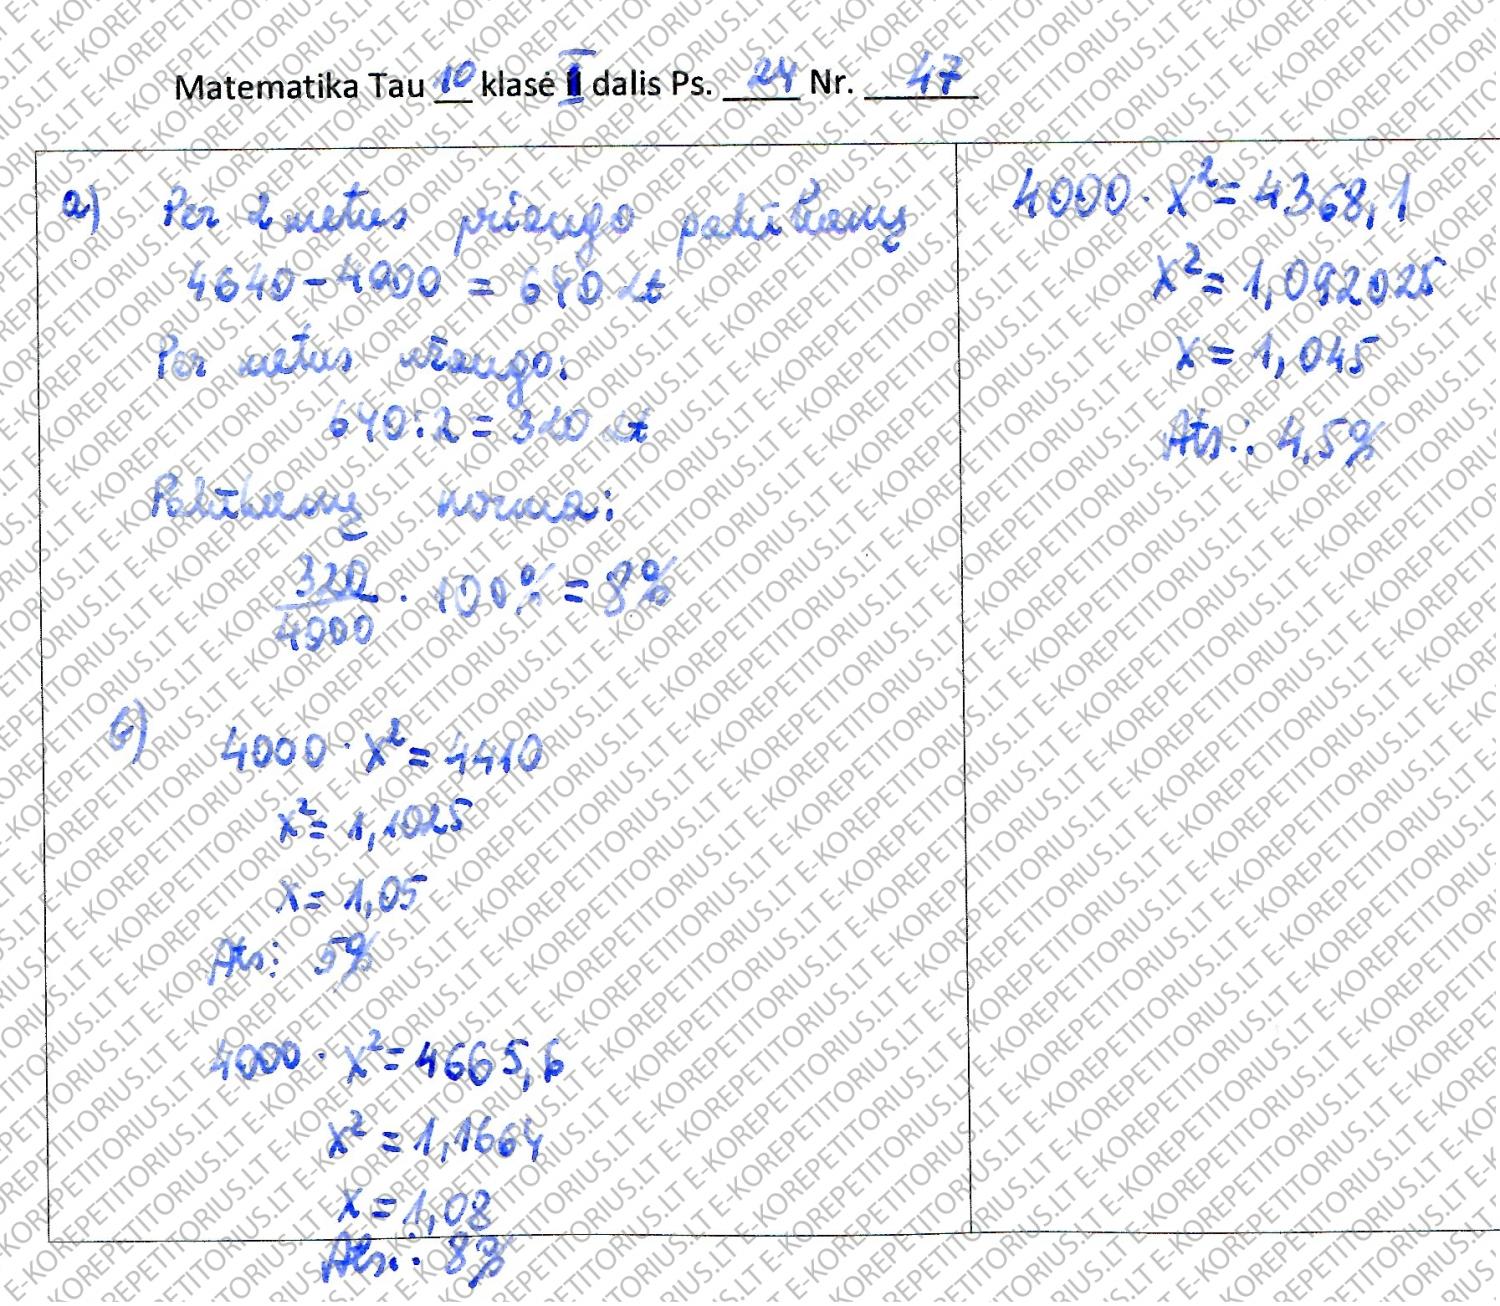 Matematika Tau 10 klasė I dalis Ps. 24 Nr. 47
a) Per 2 metus priaugo palūkanų
4640 - 4000 = 640 Lt
Per metus užaugo:
640 : 2 = 320 Lt
Palūkanų norma:
320/4000 · 100% = 8%
b) 4000 · x² = 4410
x² = 1,1025
x = 1,05
Ats.: 5%
4000 · x² = 4665,6
x² = 1,1664
x = 1,08
Ats.: 8%
4000 · x² = 4368,1
x² = 1,092025
x = 1,045
Ats.: 4,5%
E-KOREPETITORIUS.LT